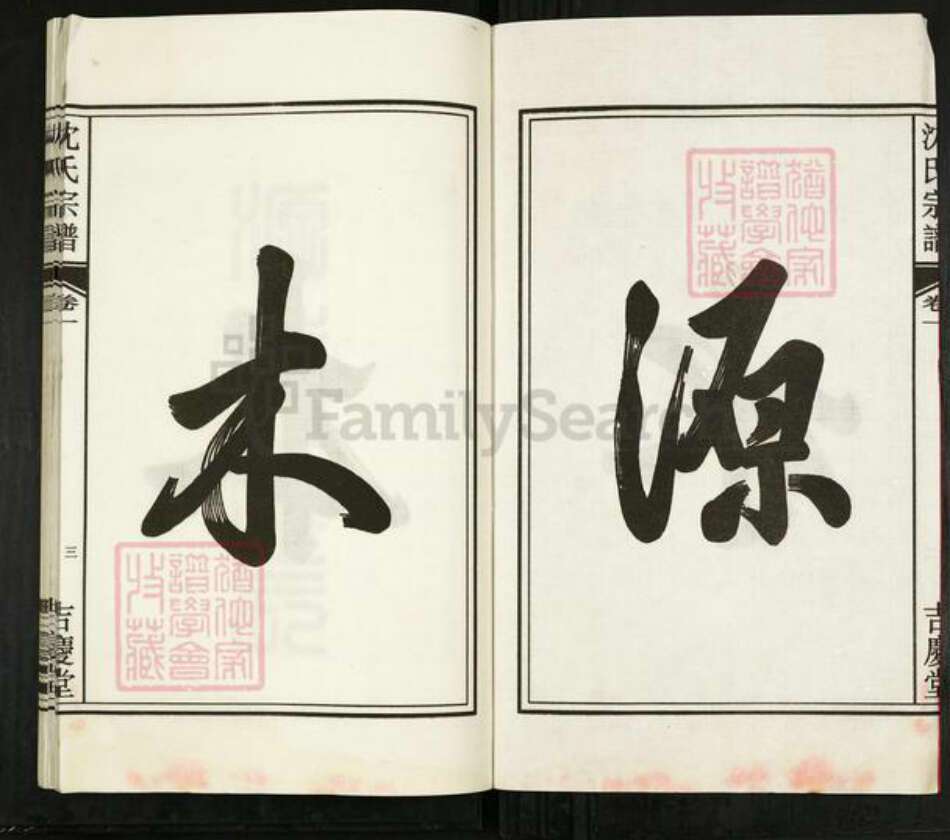 沈氏宗譜
卷一
吉慶堂
源
木
沈氏宗譜
卷一
三
吉慶堂
猶他家譜學會收藏
猶他家譜學會收藏
FamilySearch